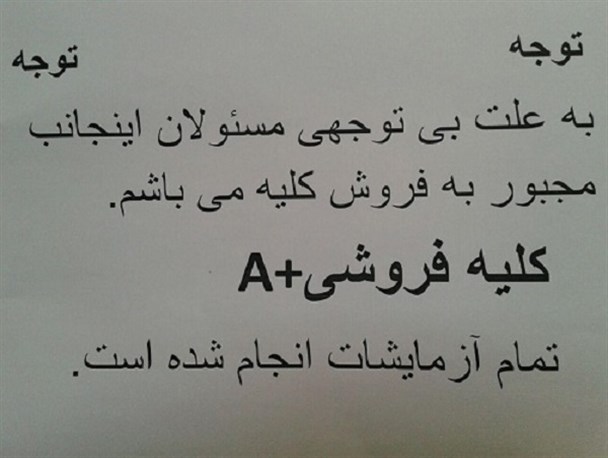 توجه توجه
به علت بی توجهی مسئولان اینجانب
مجبور به فروش کلیه می باشم.
کلیه فروشی+A
تمام آزمایشات انجام شده است.